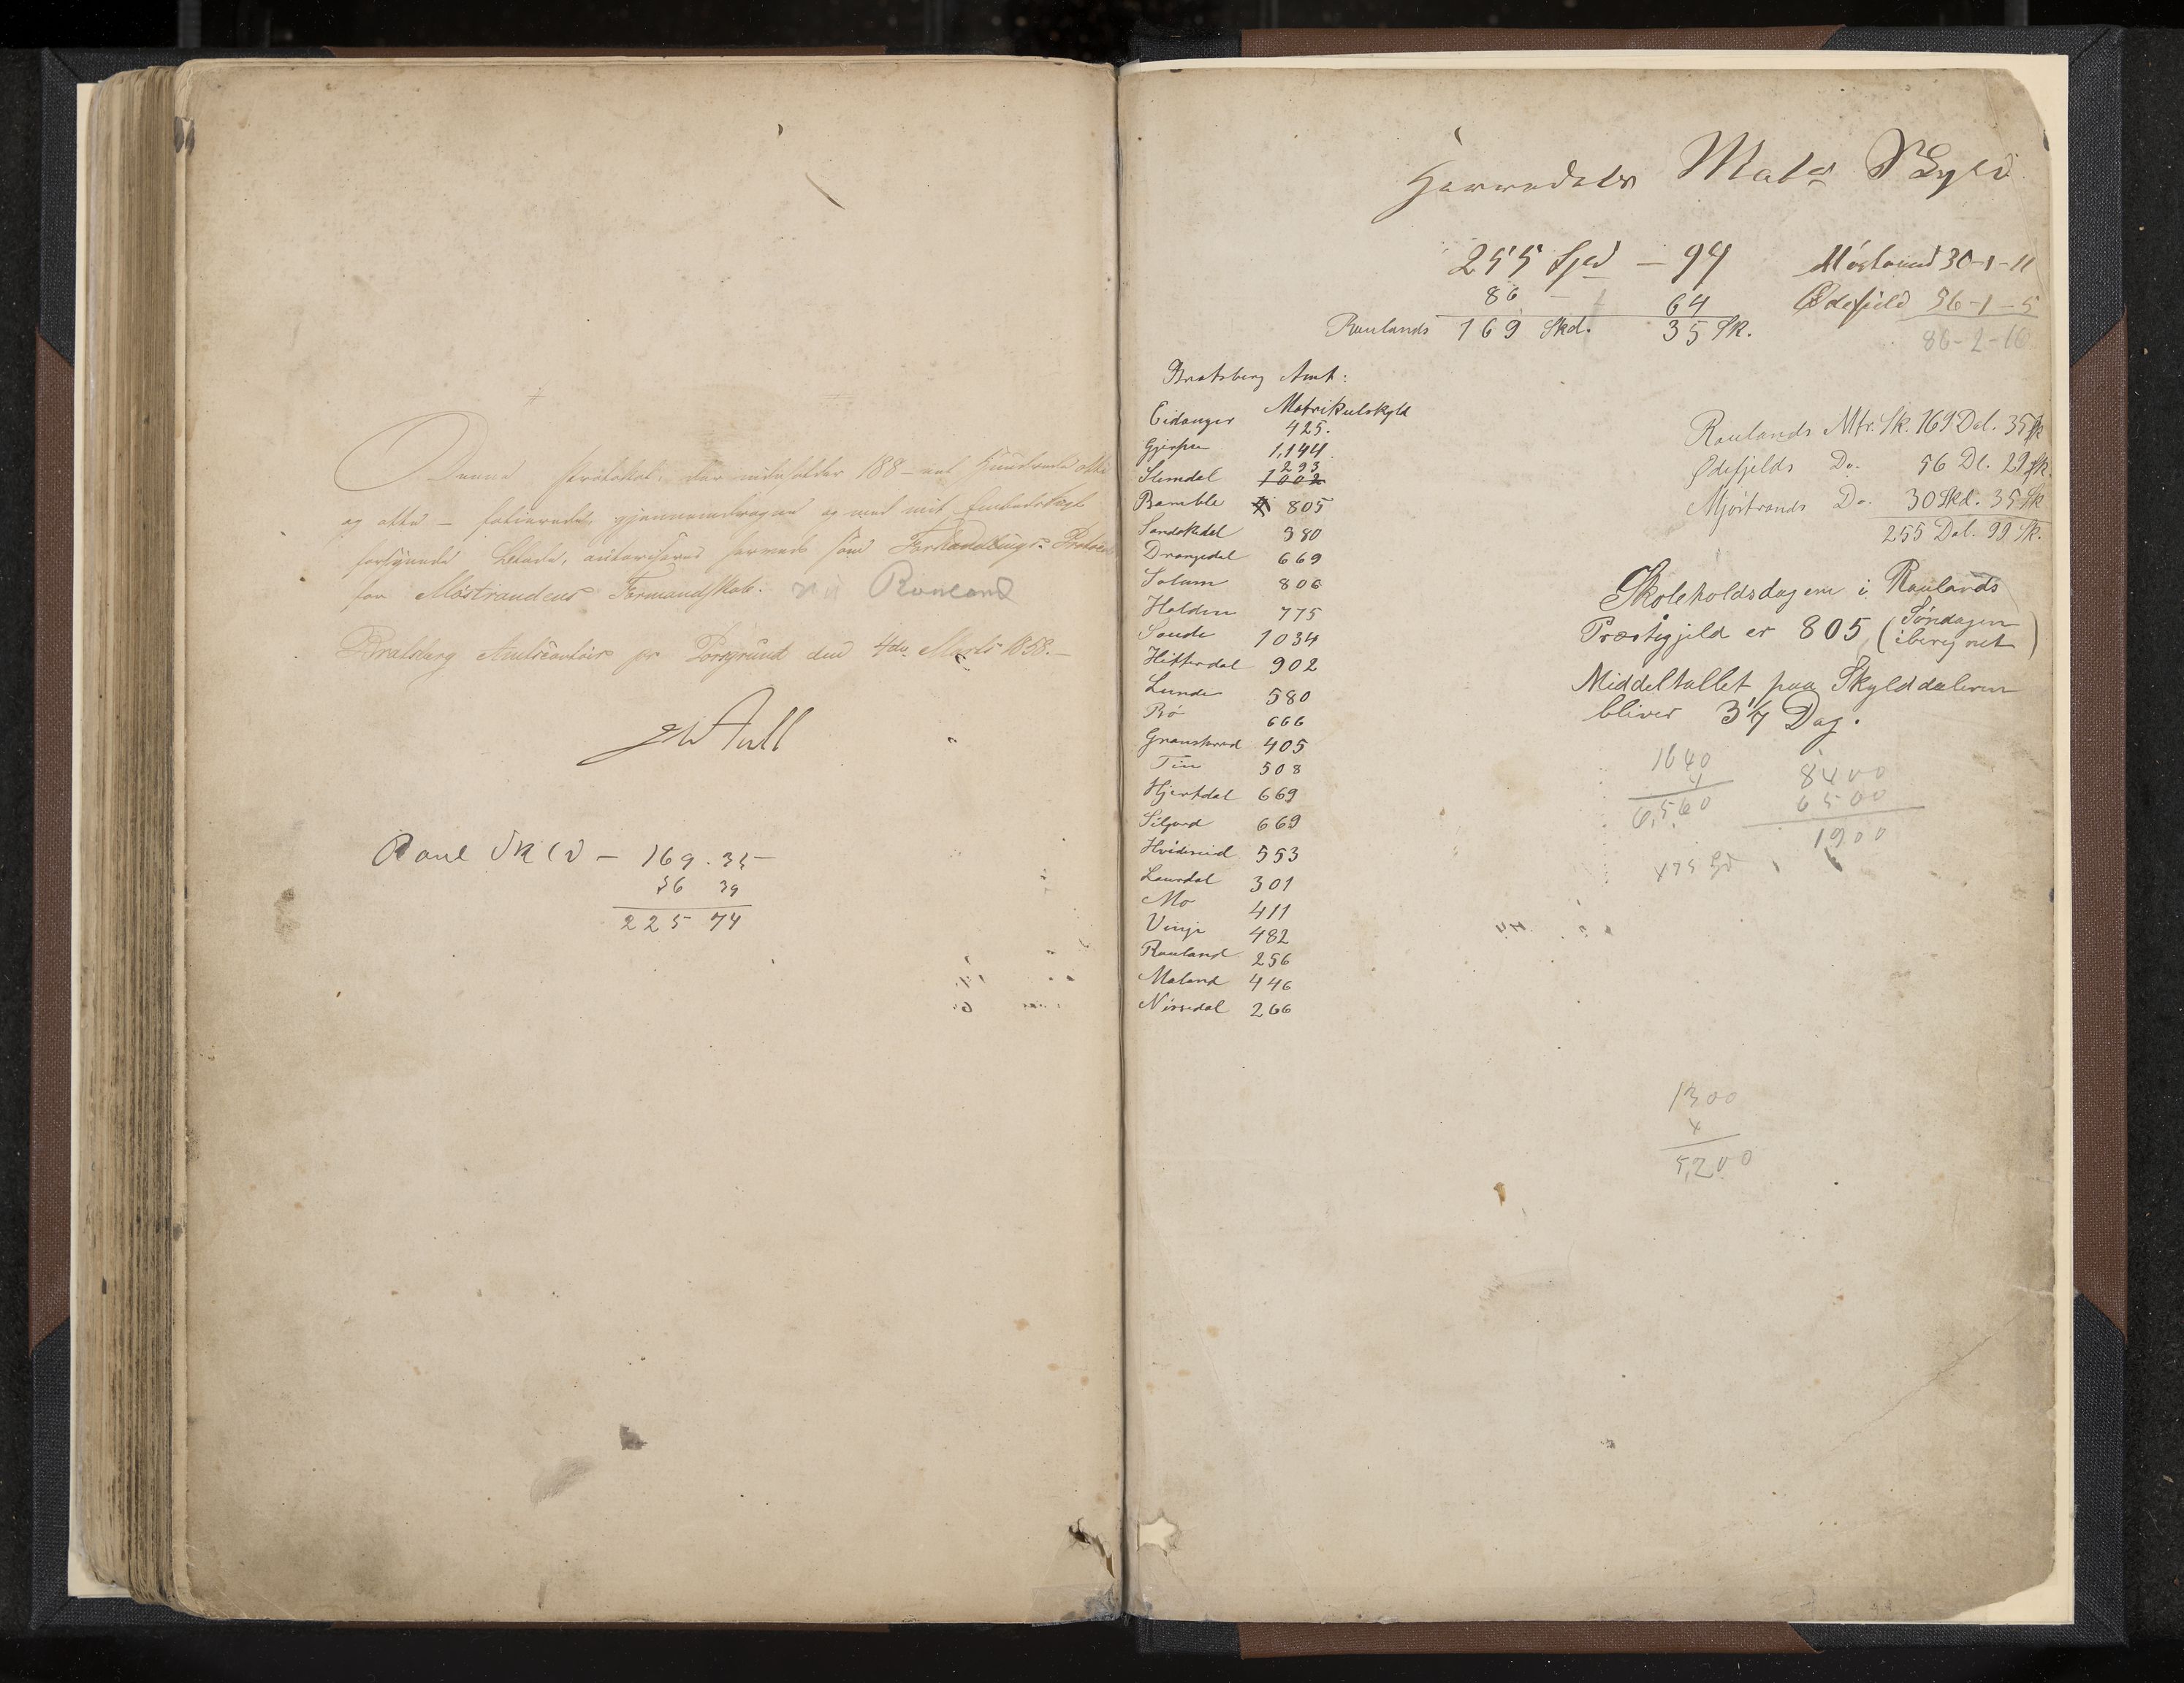 Denne Protokol, der indeholder 188 – et Hundrede otte
og otte – folierede, gjennemdragne og med mit Embedssegl
forsynede Blade, autoriseres herved som Forhandlings-Protocol
for Møstrandens Formandskab. Rauland
Bratsberg Amtscontoir pr Porsgrund den 4de Marts 1858. –
Aall
Raul Skld – 169.35
56 39
225 74
Herredets Mats Skyld
255 – 94
86 – 64
Raulands 169 Skd. 35 Sk.
Møstrand 30-1-11
Ødefjeld 56-1-5
86-2-16
Bratsberg Amt:
Matrikulskyld
Eidanger 425.
Gjerpen 1,144
293
Slemdal 1002
Bamble 805
Sandøkedal 380
Drangedal 669
Solum 806
Holden 775
Saude 1034
Hitterdal 902
Lunde 580
Bö 666
Gransherred 405
Tin 508
Hjertdal 669
Siljord 669
Hvideseid 553
Laurdal 301
Mo 411
Vinje 482
Rauland 256
Moland 446
Nissedal 266
Raulands Mtr. Sk. 169 Dal. 35 Sk
Ødefjelds Do. 56 Dl. 29 Sk.
Mjöstrands Do. 30 Skd. 35 Sk
255 Dal. 99 Sk.
Skoleholdsdagene i Raulands
Præstegjeld er 805 (Søndagen
iberegnet)
Middeltallet paa Skylddaleren
bliver 3 1/7 Dag.
1640
4
6,560
8400
6500
1900
1300
4
5,200